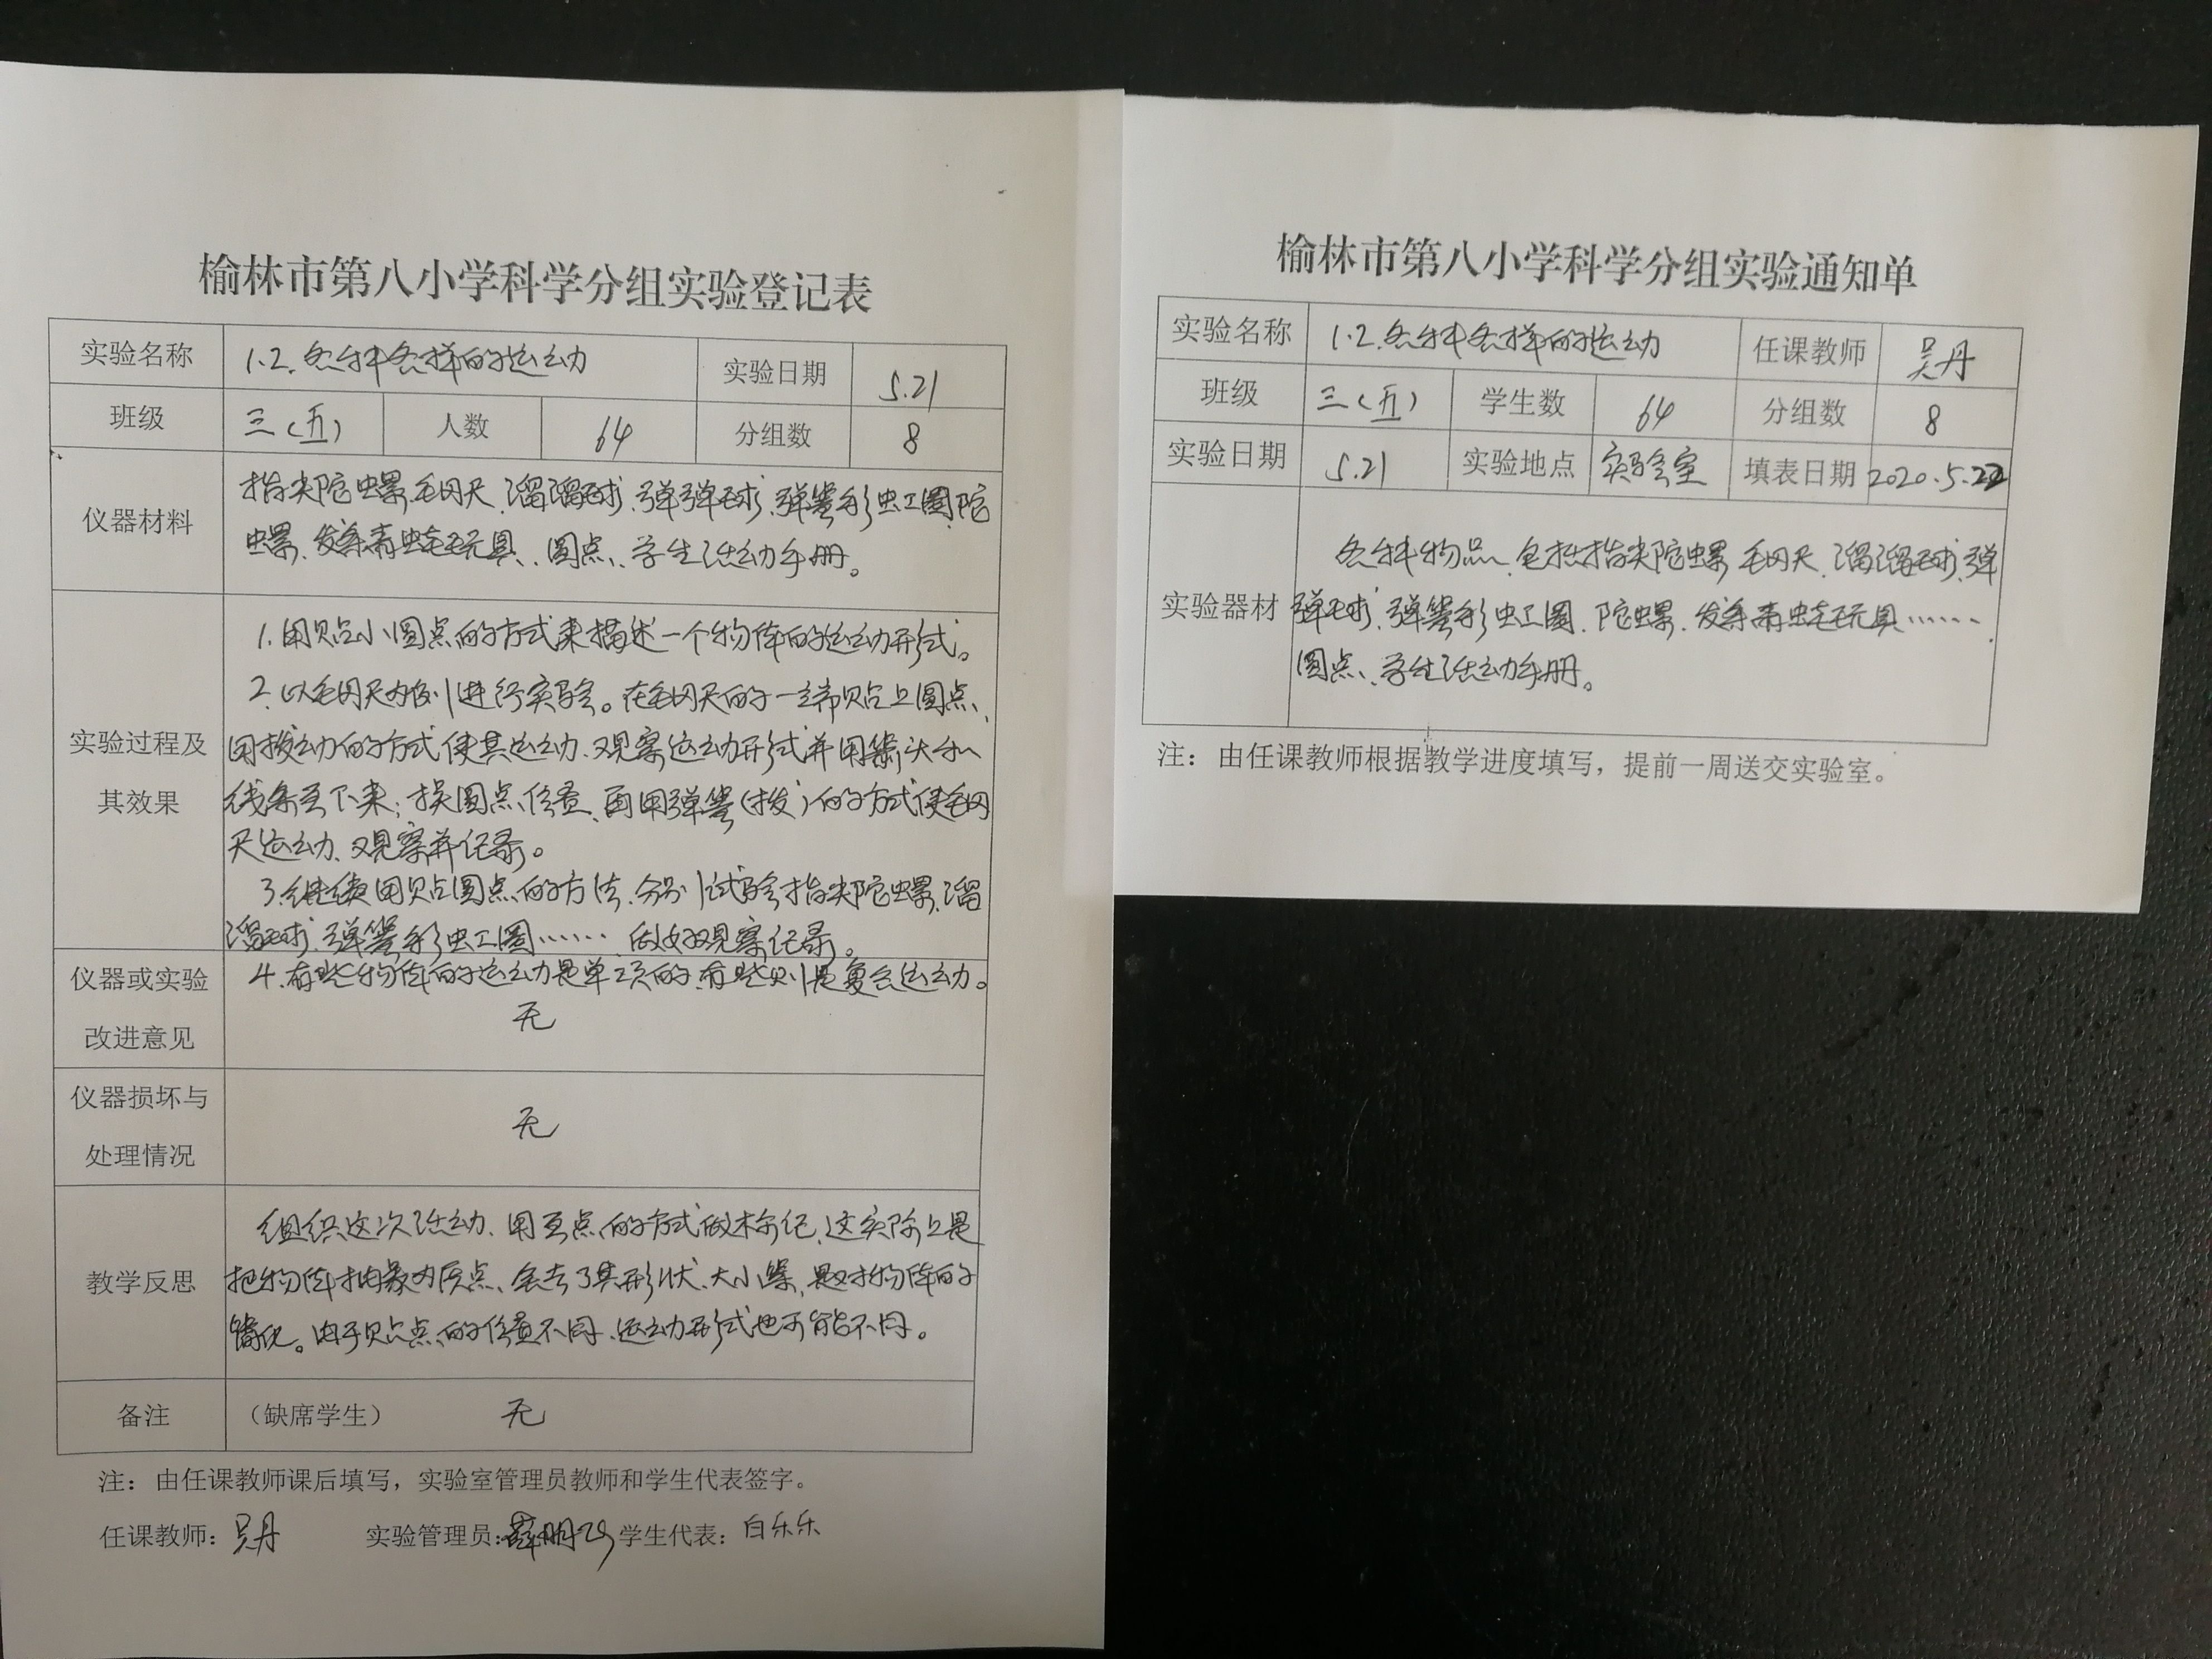 榆林市第八小学科学分组实验登记表
实验名称 1.2.各种各样的运动 实验日期 5.21
班级 三(五) 人数 64 分组数 8
仪器材料
指尖陀螺、毛网尺、溜溜球、弹弹球、弹簧彩虹圈、陀
螺、发条青蛙玩具、圆点、学生活动手册。
实验过程及
其效果
1.用贴小圆点的方式来描述一个物体的运动形式。
2.以毛网尺为例进行实验。在毛网尺的一端贴上圆点、
用拨动的方式使其运动、观察运动形式并用箭头和
线条画下来;换圆点位置、再用弹簧(拨)的方式使毛网
尺运动、观察并记录。
3.继续用贴圆点的方法、分别试验指尖陀螺、溜
溜球、弹簧彩虹圈…… 做好观察记录。
仪器或实验
改进意见
4.有些物体的运动是单项的、有些则是复合运动。
无
仪器损坏与
处理情况
无
教学反思
组织这次活动、用画点的方式做标记、这实际上是
把物体抽象为质点、舍去了其形状、大小等、是对物体的
简化。由于贴点的位置不同、运动形式也可能不同。
备注 (缺席学生) 无
注：由任课教师课后填写，实验室管理员教师和学生代表签字。
任课教师：吴丹 实验管理员： 学生代表：白乐乐
榆林市第八小学科学分组实验通知单
实验名称 1.2.各种各样的运动 任课教师 吴丹
班级 三(五) 学生数 64 分组数 8
实验日期 5.21 实验地点 实验室 填表日期 2020.5.22
实验器材
各种物品、包括指尖陀螺、毛网尺、溜溜球、弹
弹球、弹簧彩虹圈、陀螺、发条青蛙玩具……
圆点、学生活动手册。
注：由任课教师根据教学进度填写，提前一周送交实验室。